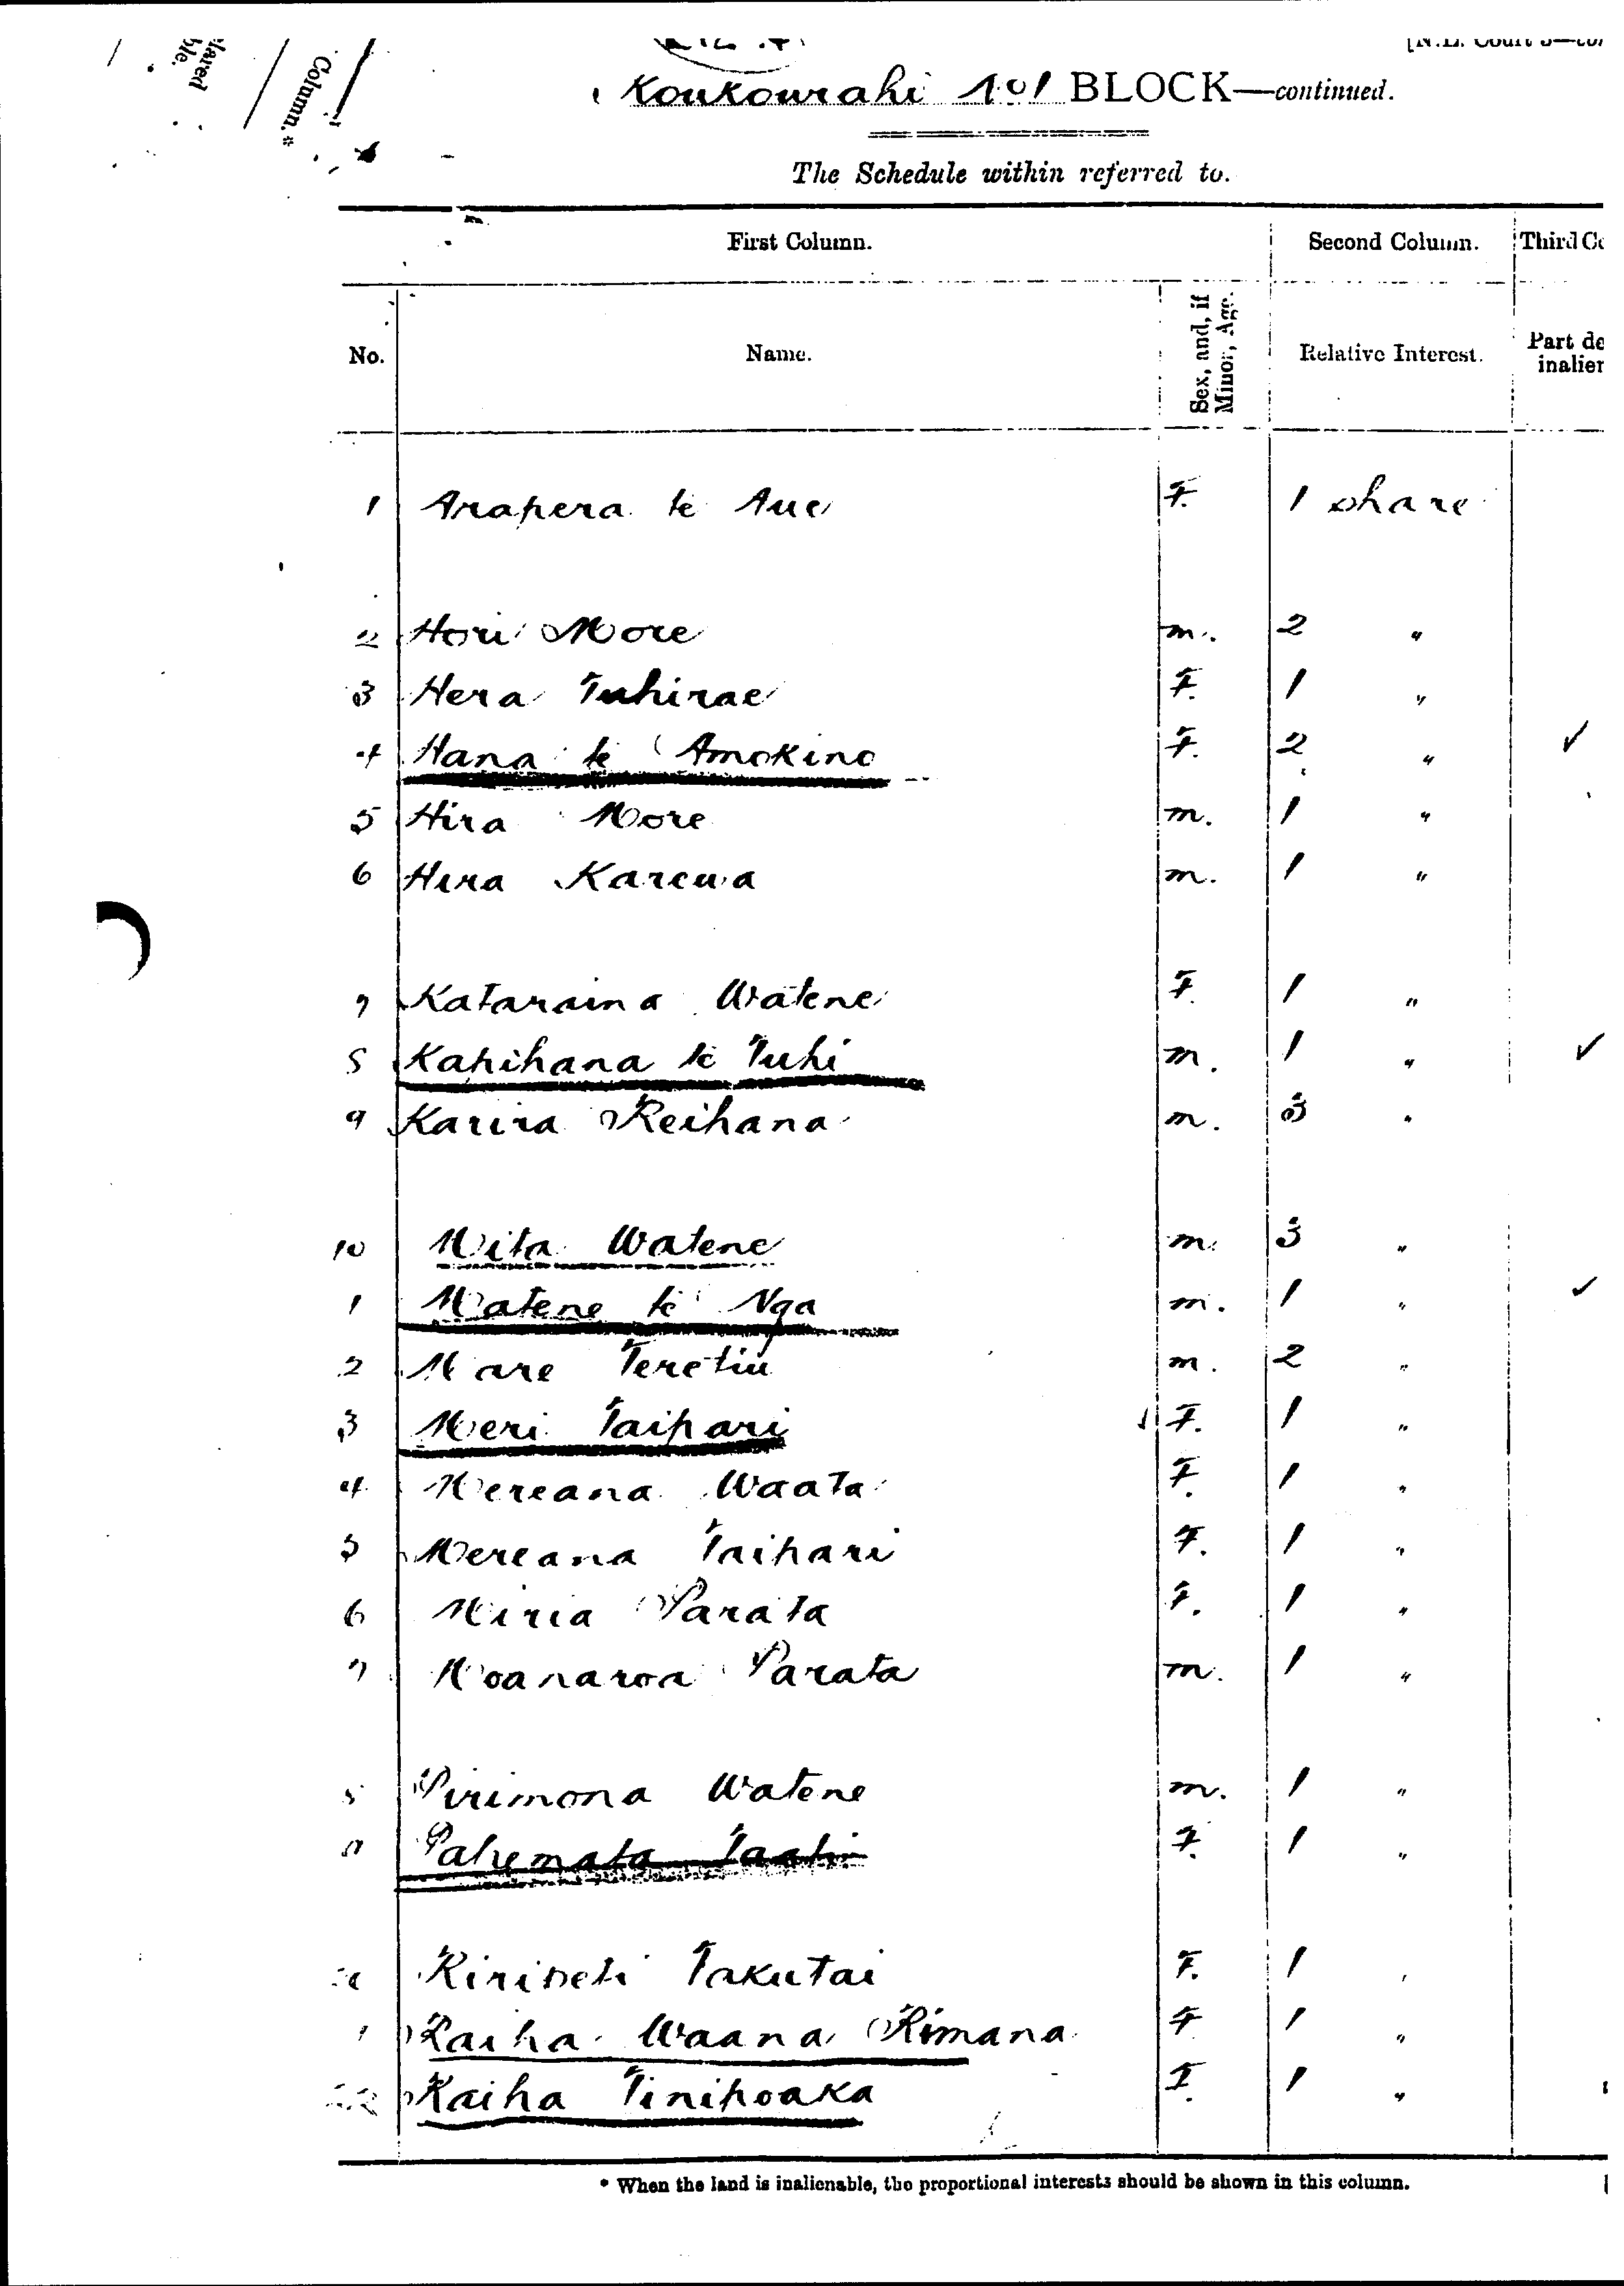 [N.L. Court
lared
ble.
Column.*
Koukourahi 1c1 BLOCK—continued.
The Schedule within referred to.
First Column. Second Column. Third Co
No. Name. Sex, and, if Minor, Age. Relative Interest. Part de inalien
1 Arapera te Aue F. 1 share
2 Hori More m. 2 "
3 Hera Tuhirae F. 1 "
4 Hana te Amokino F. 2 " ✓
5 Hira More m. 1 "
6 Hira Karewa m. 1 "
7 Kataraina Watene F. 1 "
8 Kapihana te Tuhi m. 1 " ✓
9 Karira Reihana m. 3 "
10 Mita Watene m. 3 "
1 Matene te Nga m. 1 " ✓
2 Mare Teretiu m. 2 "
3 Meri Taipari F. 1 "
4 Mereana Waata F. 1 "
5 Mereana Taipari F. 1 "
6 Miria Parata F. 1 "
7 Moanaroa Parata m. 1 "
8 Pirimona Watene m. 1 "
9 Pahemata F. 1 "
Riripeti Takutai F. 1 "
1 Raiha Waana Rimana F 1 "
22 Raiha Tinipoaka F. 1 "
* When the land is inalienable, the proportional interests should be shown in this column.